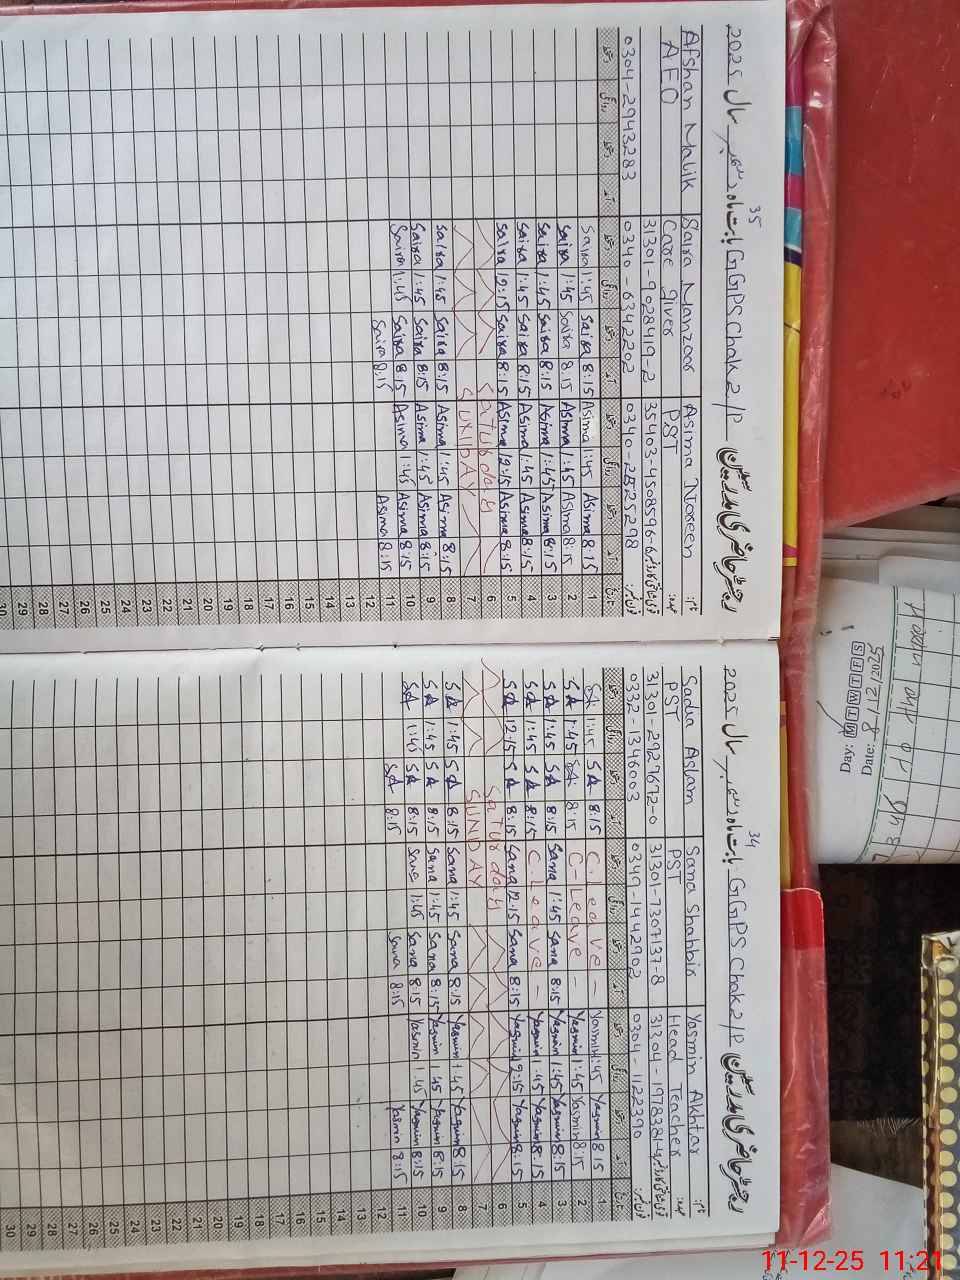 رجسٹر حاضری مدرسین GGPS Chak 2/P بابت ماہ دسمبر سال 2025
34
نام:
Yasmin Akhtar
Sana Shabbir
Sadia Aslam
عہدہ:
Head Teacher
PST
PST
31304-1978381-4
31301-7307137-8
31301-2927672-0
فون نمبر:
0304-1122390
0349-1442902
0332-1346003
تاریخ آمد دستخط روانگی دستخط آمد دستخط روانگی دستخط آمد دستخط روانگی دستخط
1 8:15 Yasmin 1:45 Yasmin C.Leave - 8:15 SA 1:45 SA
2 8:15 Yasmin 1:45 Yasmin C-Leave - 8:15 SA 1:45 SA
3 8:15 Yasmin 1:45 Yasmin 8:15 Sana 1:45 Sana 8:15 SA 1:45 SA
4 8:15 Yasmin 1:45 Yasmin C.Leave - 8:15 SA 1:45 SA
5 8:15 Yasmin 12:15 Yasmin 8:15 Sana 12:15 Sana 8:15 SA 12:15 SA
6 Saturday
7 SUNDAY
8 8:15 Yasmin 1:45 Yasmin 8:15 Sana 1:45 Sana 8:15 SA 1:45 SA
9 8:15 Yasmin 1:45 Yasmin 8:15 Sana 1:45 Sana 8:15 SA 1:45 SA
10 8:15 Yasmin 1:45 Yasmin 8:15 Sana 1:45 Sana 8:15 SA 1:45 SA
11 8:15 Yasmin 8:15 Sana 8:15 SA
12
13
14
15
16
17
18
19
20
21
22
23
24
25
26
27
28
29
30
رجسٹر حاضری مدرسین GGPS Chak 2/P بابت ماہ دسمبر سال 2025
35
نام:
Asima Noreen
Saira Manzoor
Afshan Malik
عہدہ:
PST
Care giver
AEO
35403-4508596-6
31301-9028419-2
فون نمبر:
0340-2525298
0340-6342202
0304-2943283
تاریخ آمد دستخط روانگی دستخط آمد دستخط روانگی دستخط آمد دستخط روانگی دستخط
1 8:15 Asima 1:45 Asima 8:15 Saira 1:45 Saira
2 8:15 Asima 1:45 Asima 8:15 Saira 1:45 Saira
3 8:15 Asima 1:45 Asima 8:15 Saira 1:45 Saira
4 8:15 Asima 1:45 Asima 8:15 Saira 1:45 Saira
5 8:15 Asima 12:15 Asima 8:15 Saira 12:15 Saira
6 Saturday
7 SUNDAY
8 8:15 Asima 1:45 Asima 8:15 Saira 1:45 Saira
9 8:15 Asima 1:45 Asima 8:15 Saira 1:45 Saira
10 8:15 Asima 1:45 Asima 8:15 Saira 1:45 Saira
11 8:15 Asima 8:15 Saira
12
13
14
15
16
17
18
19
20
21
22
23
24
25
26
27
28
29
30
Day: M T W T F S
Date: 8/12/2025
11-12-25 11:21